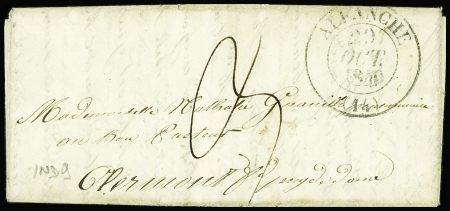 ALLANCHE
29
OCT.
1840
(14)
Mademoiselle Nathalie
au Bon Pasteur
Clermont Puy de dome
IND9